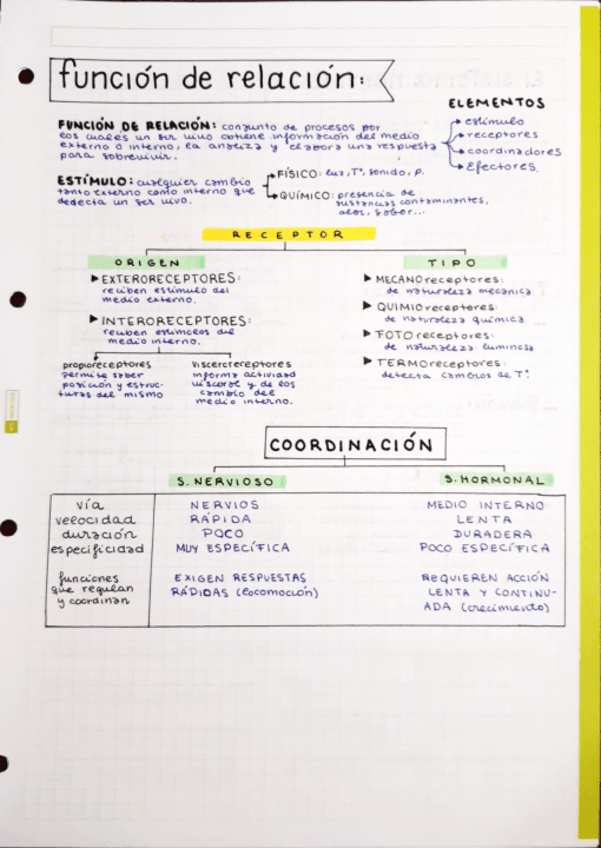 función de relación:
ELEMENTOS
estímulo
receptores
coordinadores
Efectores.
FUNCIÓN DE RELACIÓN: conjunto de procesos por
los cuales un ser vivo obtiene información del medio
externo o interno, la analiza y elabora una respuesta
para sobrevivir.
ESTÍMULO: cualquier cambio
tanto externo como interno que
detecta un ser vivo.
FÍSICO: luz, Tº, sonido, p.
QUÍMICO: presencia de
sustancias contaminantes,
olor, sabor...
RECEPTOR
ORIGEN
EXTERORECEPTORES:
reciben estímulo del
medio externo.
INTERORECEPTORES:
reciben estímulos del
medio interno.
propioreceptores
permite saber
posición y estruc-
turas del mismo
viscerorreceptores
informa actividad
visceral y de los
cambio del
medio interno.
TIPO
MECANOreceptores:
de naturaleza mecánica
QUIMIOreceptores:
de naturaleza química
FOTOreceptores:
de naturaleza luminosa
TERMOreceptores:
detecta cambios de Tº
COORDINACIÓN
S. NERVIOSO S. HORMONAL
vía NERVIOS MEDIO INTERNO
velocidad RÁPIDA LENTA
duración POCO DURADERA
especificidad MUY ESPECÍFICA POCO ESPECÍFICA
funciones EXIGEN RESPUESTAS REQUIEREN ACCIÓN
que regulan RÁDIDAS (locomoción) LENTA Y CONTINU-
y coordinan ADA (crecimiento)